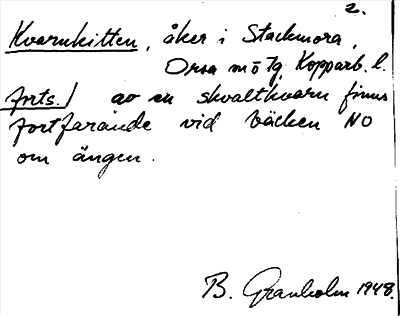 2.
Kvarnkitten, åker i Stackmora,
Orsa mō Tg, Kopparb. l.
forts./ av en skvaltkvarn finns
fortfarande vid bäcken NO
om ängen.
B. Granholm 1948.